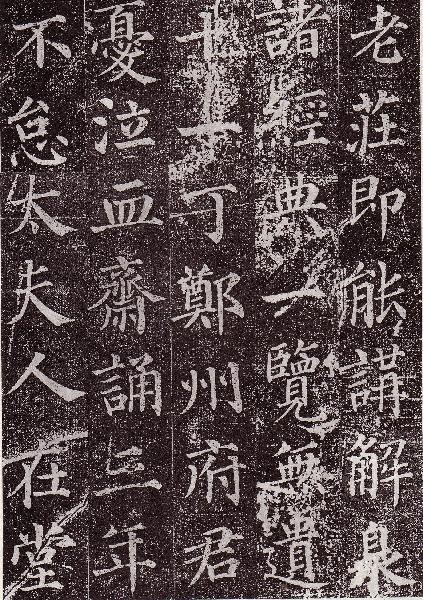 老莊即能講解臮
諸經典一覽無遺
十一丁鄭州府君
憂泣血齋誦三年
不怠太夫人在堂